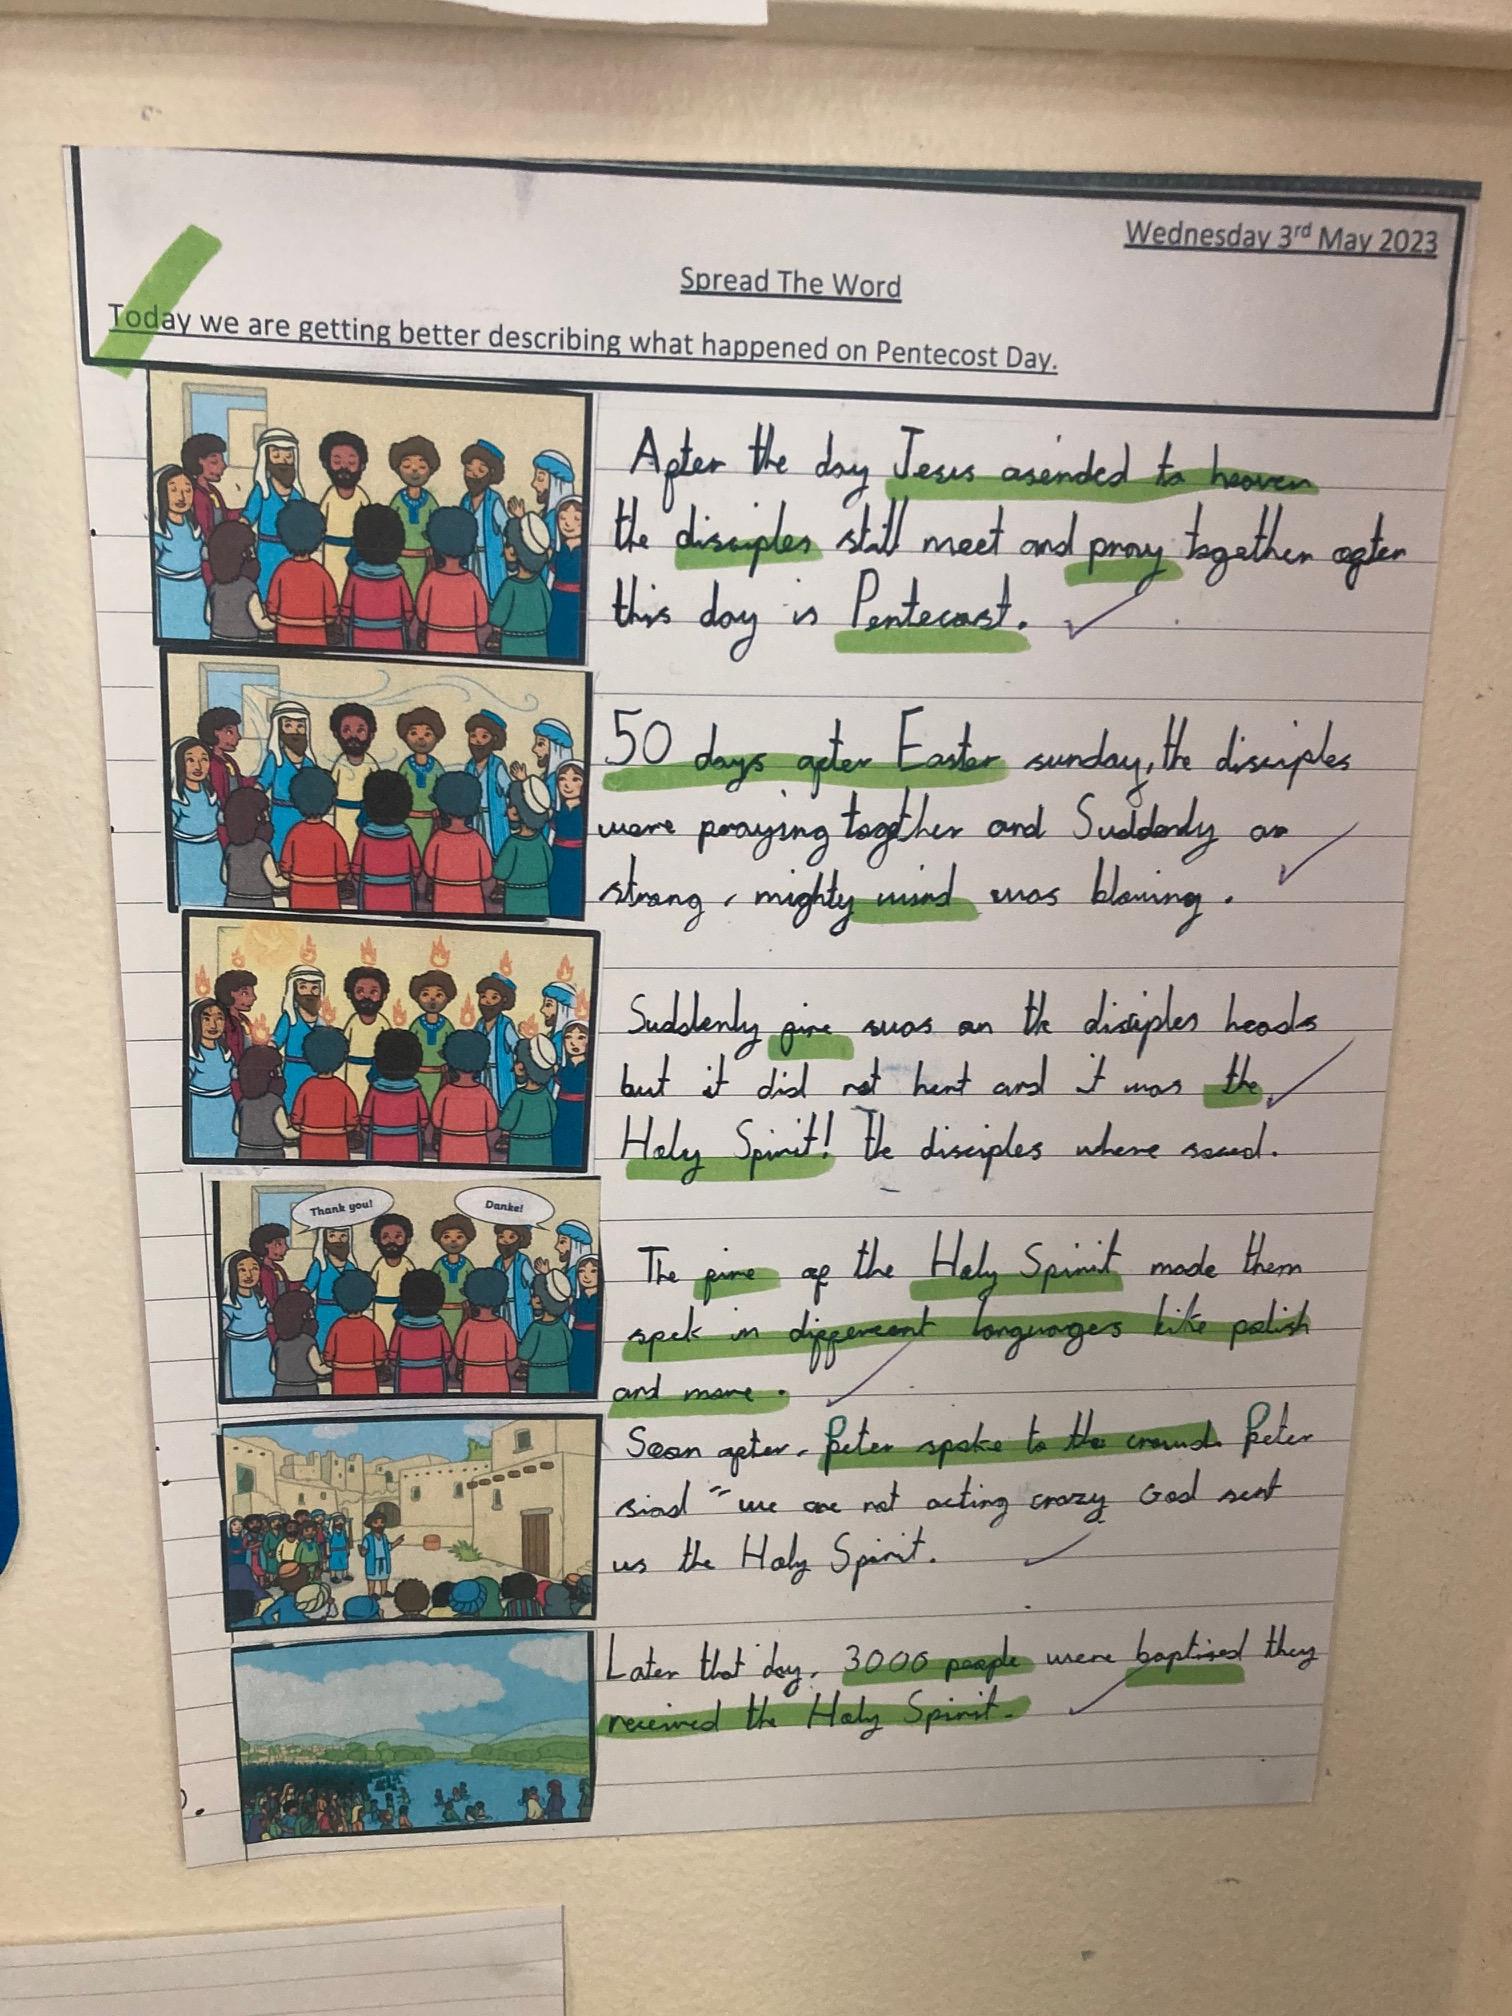 Wednesday 3rd May 2023
Spread The Word
Today we are getting better describing what happened on Pentecost Day.
After the day Jesus asended to heaven
the disciples still meet and pray together after
this day is Pentecost.
50 days after Easter sunday, the disciples
were praying together and Suddenly an
strong, mighty wind was blowing.
Suddenly fire was on the disciples heads
but it did not hurt and it was the
Holy Spirit! The disciples where saved.
Thank you!
Danke!
The fire of the Holy Spirit made them
spek in different languages like polish
and more.
Soon after, Peter spoke to the crowd. Peter
siad "we are not acting crazy God sent
us the Holy Spirit.
Later that day, 3000 people were baptised they
received the Holy Spirit.